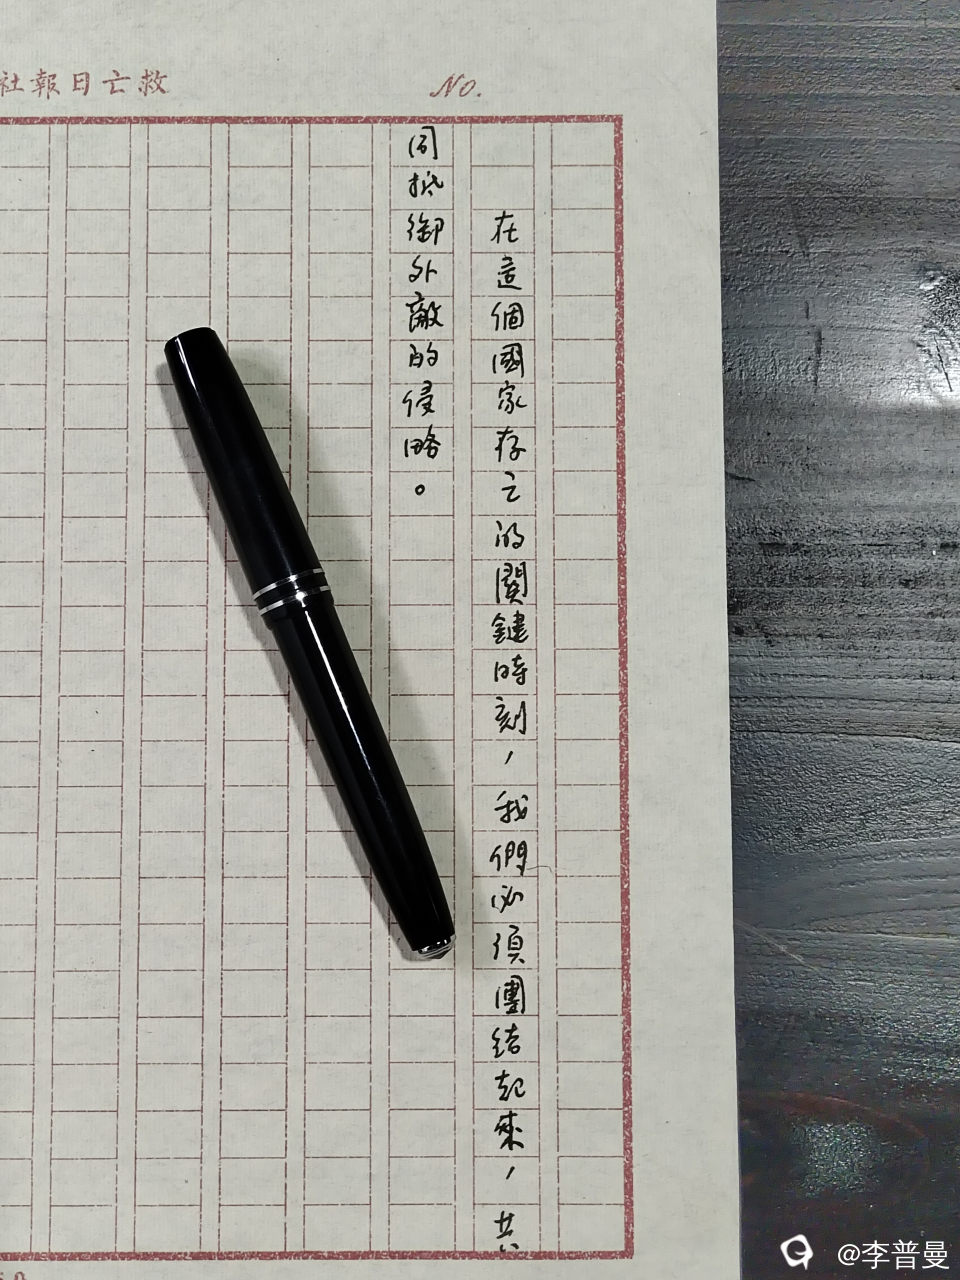 社報日亡救
No.
在這個國家存亡的關鍵時刻，我們必須團結起來，共
同抵御外敵的侵略。
@李普曼